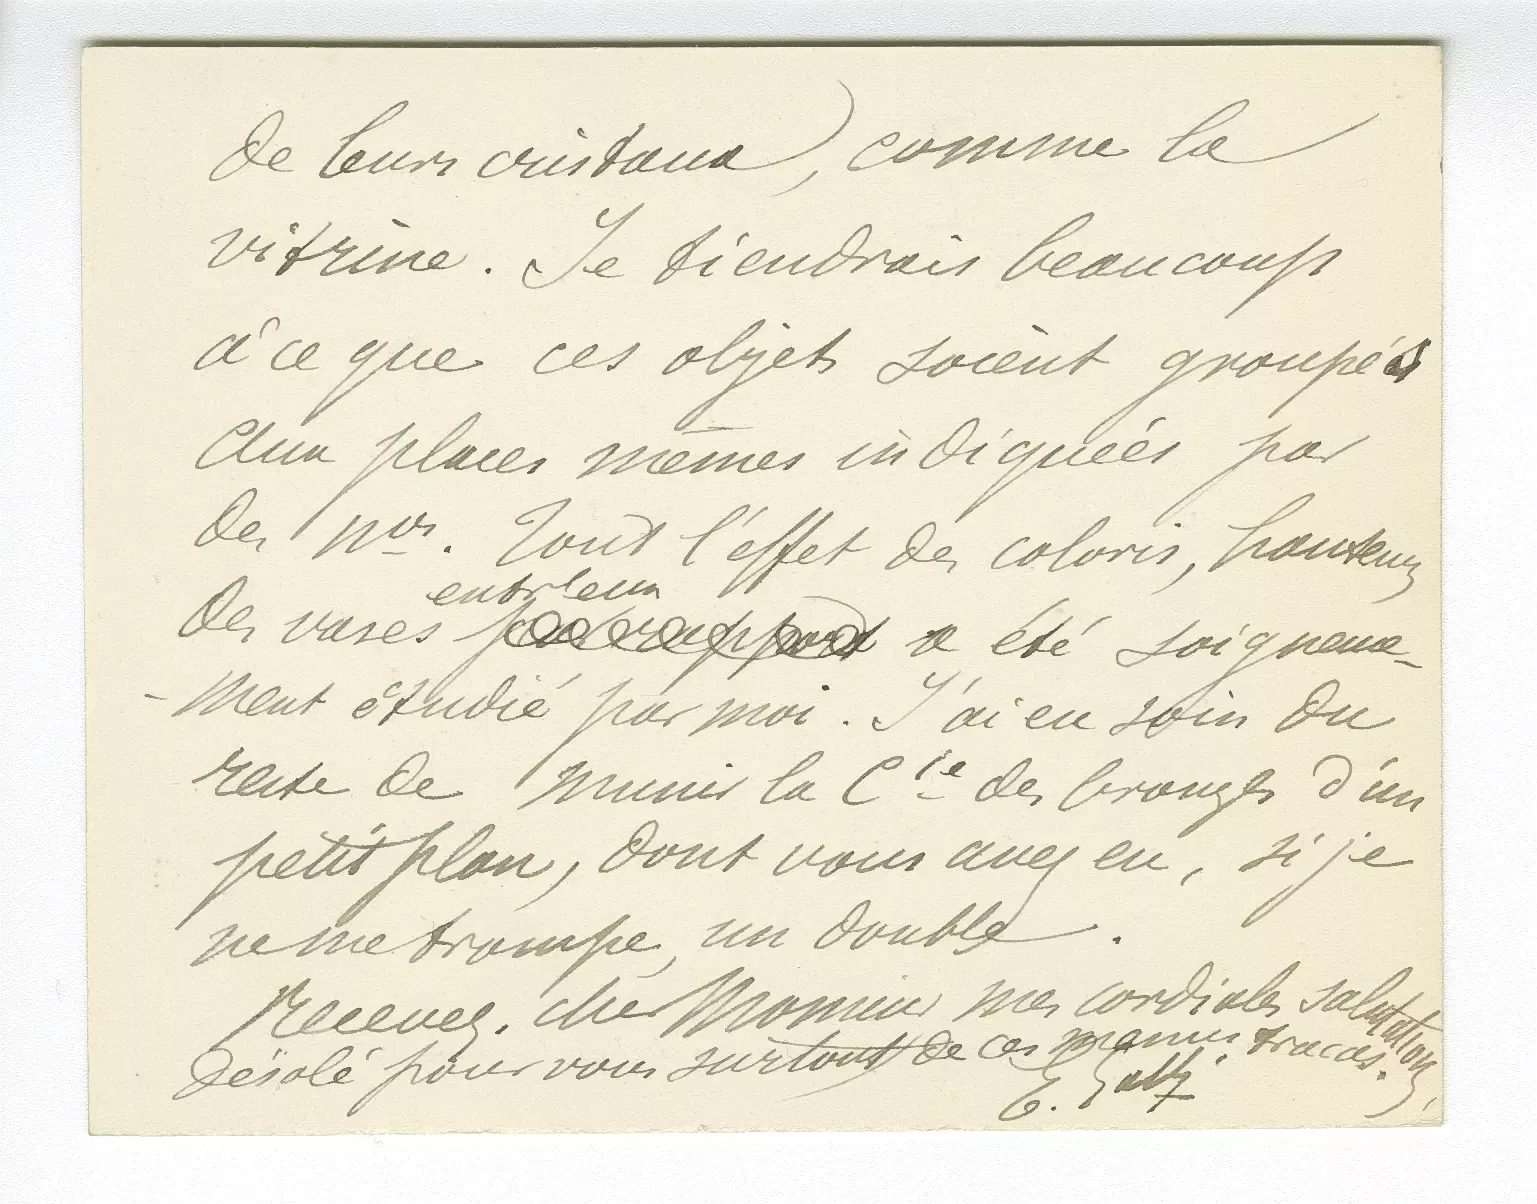 de leurs cristaux), comme la
vitrine. Je tiendrais beaucoup
à ce que ces objets soient groupés
aux places mêmes indiquées par
des nos. Tout l'effet des coloris, hauteurs
des vases entr'eux par rapport a été soigneuse-
-ment étudié par moi. J'ai eu soin du
reste de munir la Cie des bronzes d'un
petit plan, dont vous avez eu, si je
ne me trompe, un double.
Recevez, cher Monsieur mes cordiales salutations,
Désolé pour vous surtout de ces menus tracas.
E. Gallé